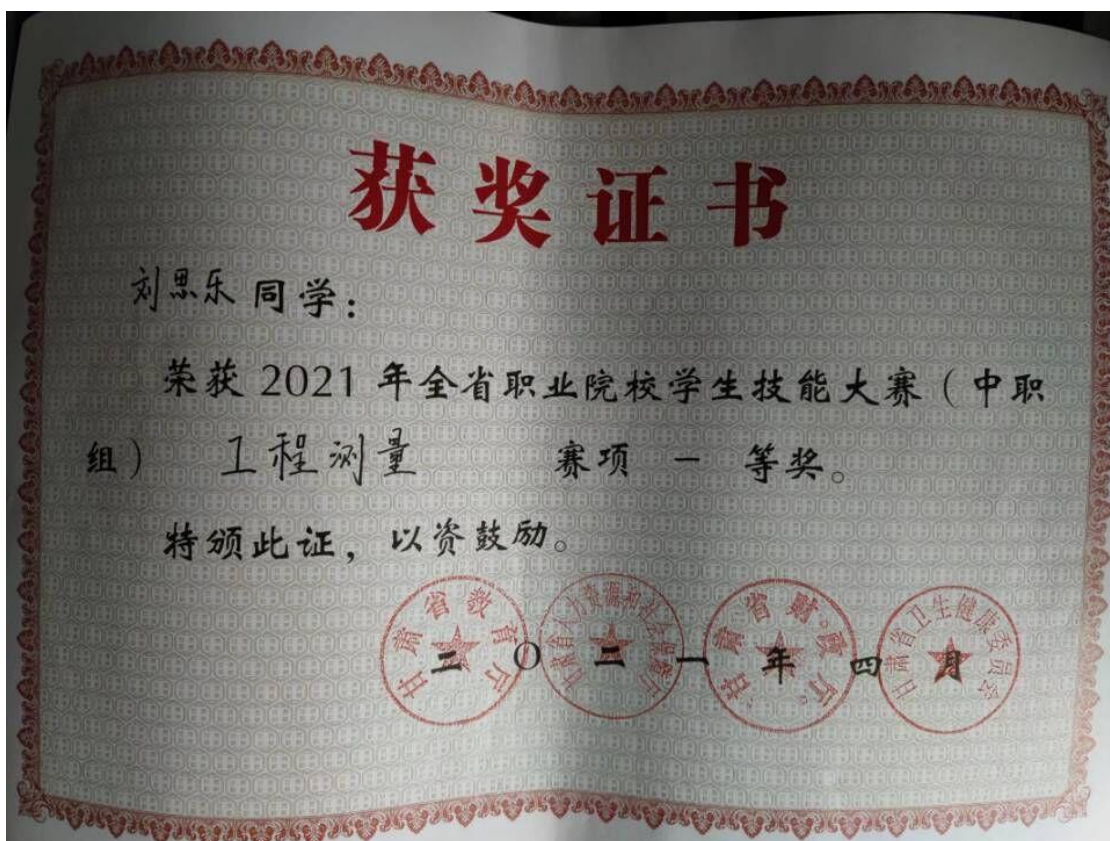 获奖证书
刘思乐同学:
荣获 2021 年全省职业院校学生技能大赛(中职
组) 工程测量 赛项 一 等奖。
特颁此证,以资鼓励。
甘肃省教育厅
甘肃省人力资源和社会保障厅
甘肃省财政厅
甘肃省卫生健康委员会
二〇二一年四月